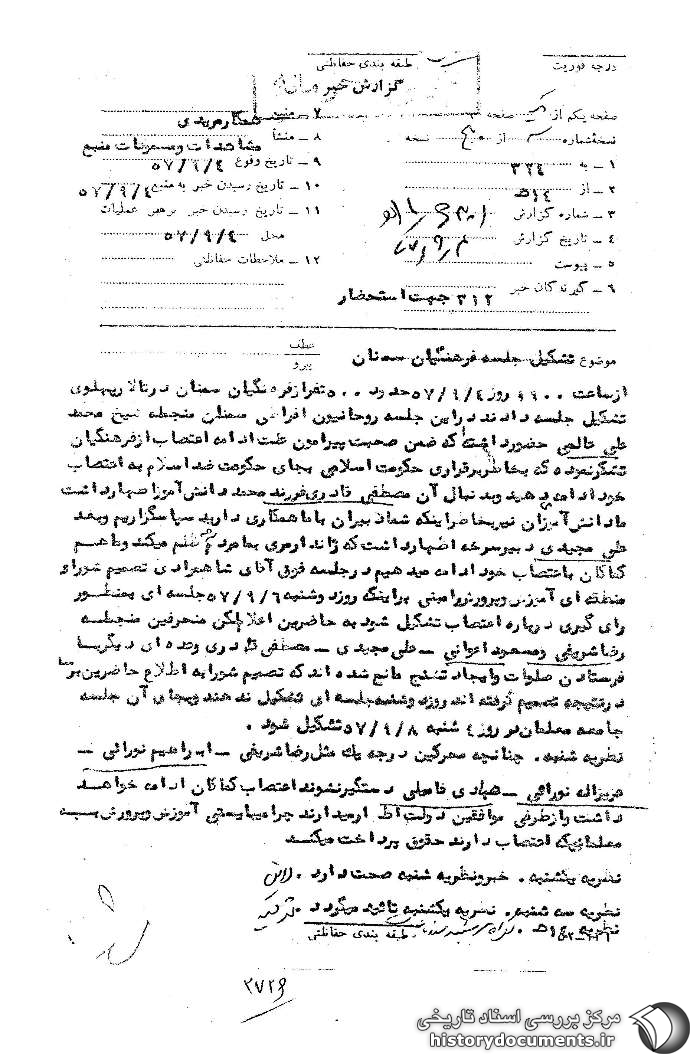 درجه فوریت
طبقه بندی حفاظتی
گزارش خبر
صفحه یکم از یک صفحه
نسخه شماره از نسخه
۱ ـ به ۳۲۴
۲ ـ از ۱۴ه
۳ ـ شماره گزارش
۴ ـ تاریخ گزارش
۵ ـ پیوست
۶ ـ گیرندگان خبر ۳۱۲ جهت استحضار
۷ ـ منبع همکار مریدی
۸ ـ منشأ مشاهدات و مسموعات منبع
۹ ـ تاریخ وقوع ۵۷/۹/۴
۱۰ ـ تاریخ رسیدن خبر به منبع ۵۷/۹/۴
۱۱ ـ تاریخ رسیدن خبر برهبر عملیات
محل ۵۷/۹/۴
۱۲ ـ ملاحظات حفاظتی
موضوع تشکیل جلسه فرهنگیان سمنان
عطف
پیرو
از ساعت ۹۹۰۰ روز ۵۷/۹/۴ حدود ۵۰۰ نفر از فرهنگیان سمنان در تالار پهلوی
تشکیل جلسه دادند در این جلسه روحانیون افراطی سمنان منجمله شیخ محمد
علی عالمی حضور داشته که ضمن صحبت پیرامون علت ادامه اعتصاب از فرهنگیان
تشکر نموده که بخاطر برقراری حکومت اسلامی بجای حکومت ضد اسلام به اعتصاب
خود ادامه دهید و بدنبال آن مصطفی نادری فرزند محمد دانش آموز اظهار داشت
ما دانش آموزان نیز بخاطر اینکه شما دبیران با ما همکاری دارید سپاسگزاریم و بعد
علی مجیدی دبیر سرخه اظهار داشت که ژاندارمری بما مردم ظلم میکند و ما هم
کماکان باعتصاب خود ادامه میدهیم در جلسه فوق آقای شاهمرادی تصمیم شورای
منطقه ای آموزش و پرورش را مبنی بر اینکه روز دوشنبه ۵۷/۹/۶ جلسه ای بمنظور
رای گیری درباره اعتصاب تشکیل شود به حاضرین اعلام لکن منحرفین منجمله
رضا شریفی و مسعود اعوانی ـ علی مجیدی ـ مصطفی نادری و عده ای دیگر با
فرستادن صلوات و ایجاد تشنج مانع شده اند که تصمیم شورا به اطلاع حاضرین برسد
در نتیجه تصمیم گرفته اند روز دوشنبه جلسه ای تشکیل ندهند و بجای آن جلسه
جامعه معلمان در روز ۴ شنبه ۵۷/۹/۸ تشکیل شود .
نظریه شنبه . چنانچه محرکین درجه یک مثل رضا شریفی ـ ابراهیم نورائی ـ
عزیزاله نورائی ـ هادی فامیلی دستگیر نشوند اعتصاب کماکان ادامه خواهد
داشت و از طرفی موافقین دولت اظهار میدارند چرا میبایستی آموزش و پرورش به
معلمانیکه اعتصاب دارند حقوق پرداخت میکند
نظریه یکشنبه . خبر و نظریه شنبه صحت دارد .
نظریه سه شنبه . نظریه یکشنبه تائید میگردد .
نظریه ۱۴ه .
طبقه بندی حفاظتی
۳۷۲۶
مرکز بررسی اسناد تاریخی
historydocuments.ir